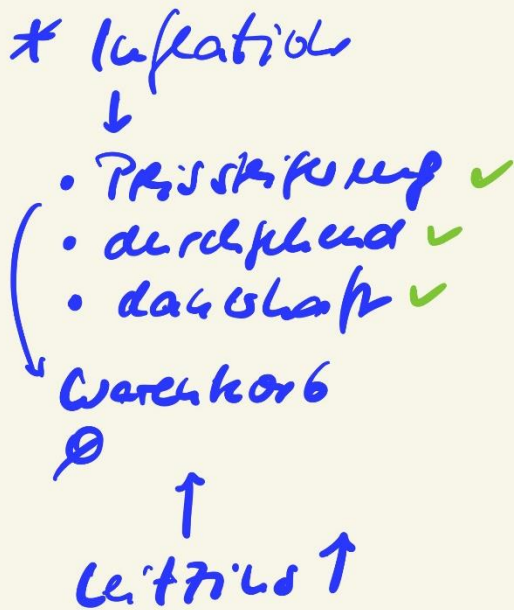 * Inflation
↓
• Preissteigerung ✓
• durchgehend ✓
• dauerhaft ✓
Warenkorb
Ø
↑
Leitzins ↑